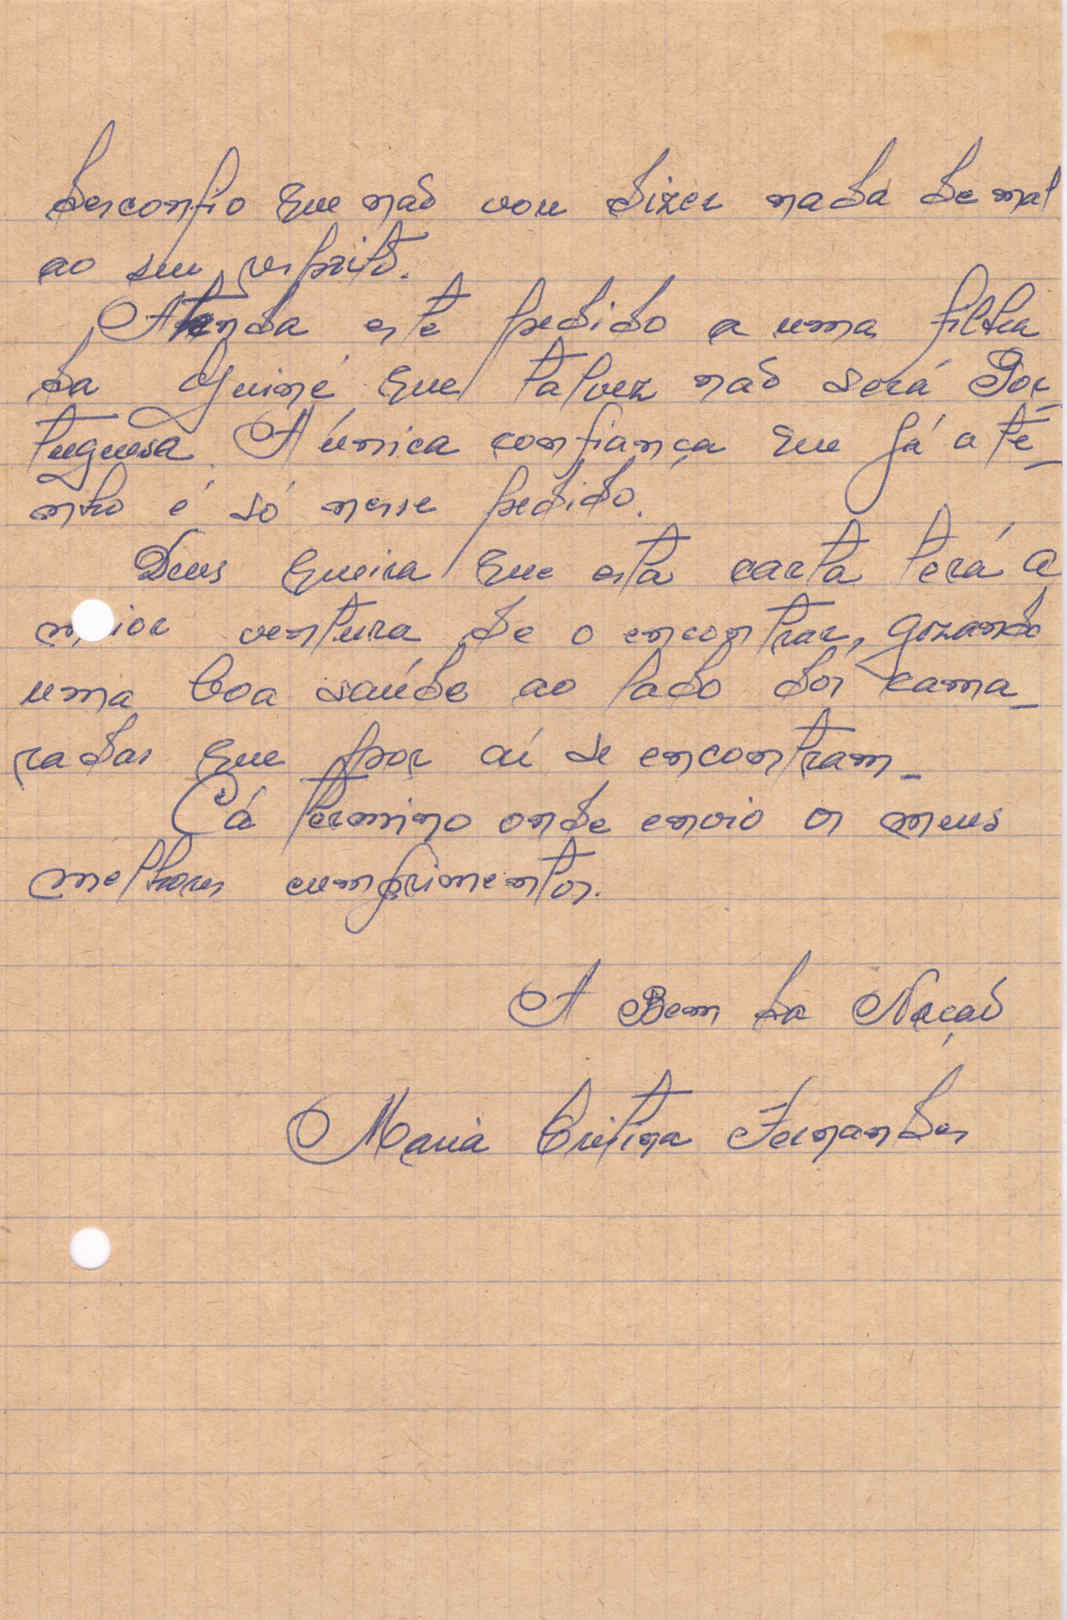 desconfio que não vou dizer nada de mal
ao seu respeito.
Atenda este pedido a uma filha
da Guiné que talvez não será Por-
tuguesa. A única confiança que já a te-
nho é só nesse pedido.
Deus queira que esta carta terá a
maior ventura de o encontrar, gozando
uma boa saúde ao lado dos cama-
radas que por aí se encontram-
Cá termino onde envio os meus
melhores cumprimentos.
A Bem da Nação
Maria Cristina Fernandes